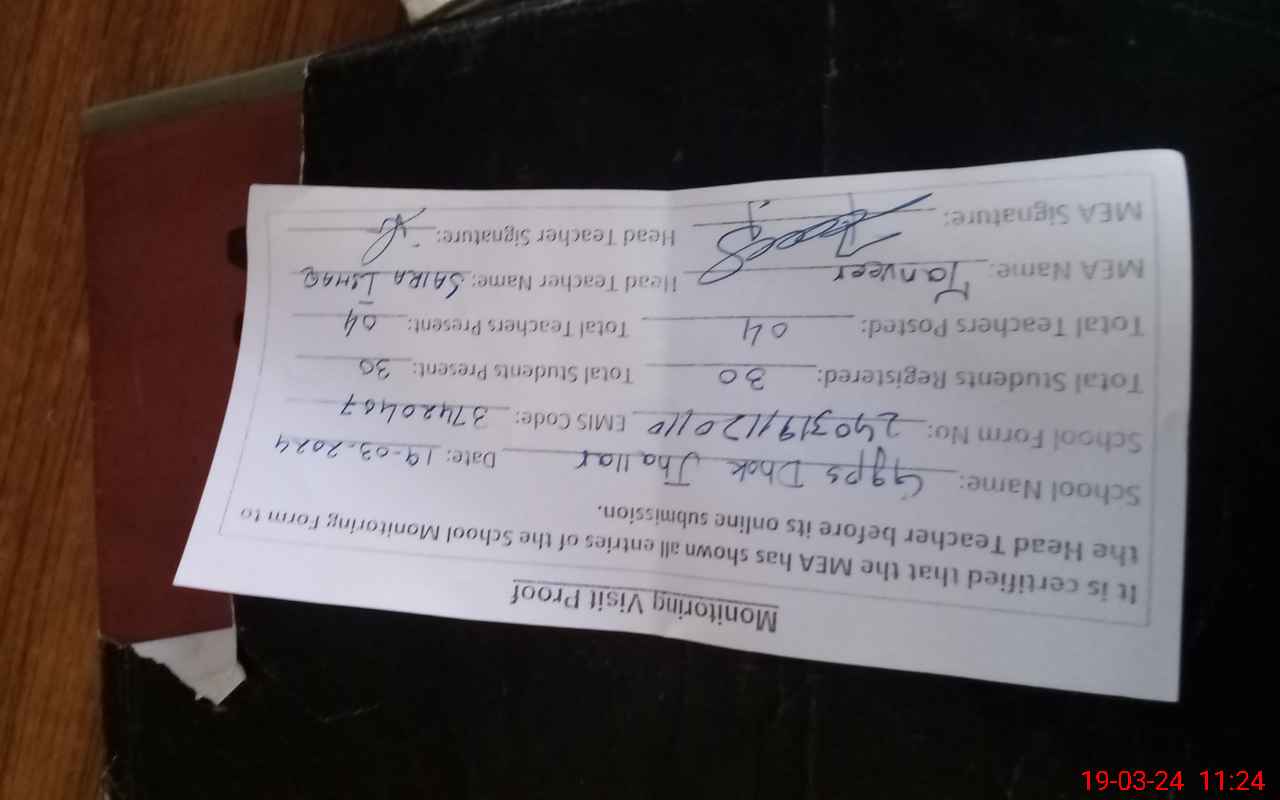 Monitoring Visit Proof
It is certified that the MEA has shown all entries of the School Monitoring Form to
the Head Teacher before its online submission.
School Name: Ggps Dhok Jhallar Date: 19-03-2024
School Form No: 240319112011 EMIS Code: 37420407
Total Students Registered: 30 Total Students Present: 30
Total Teachers Posted: 04 Total Teachers Present: 04
MEA Name: Tanveer Head Teacher Name: SAIRA ISHAQ
MEA Signature: Head Teacher Signature:
19-03-24 11:24